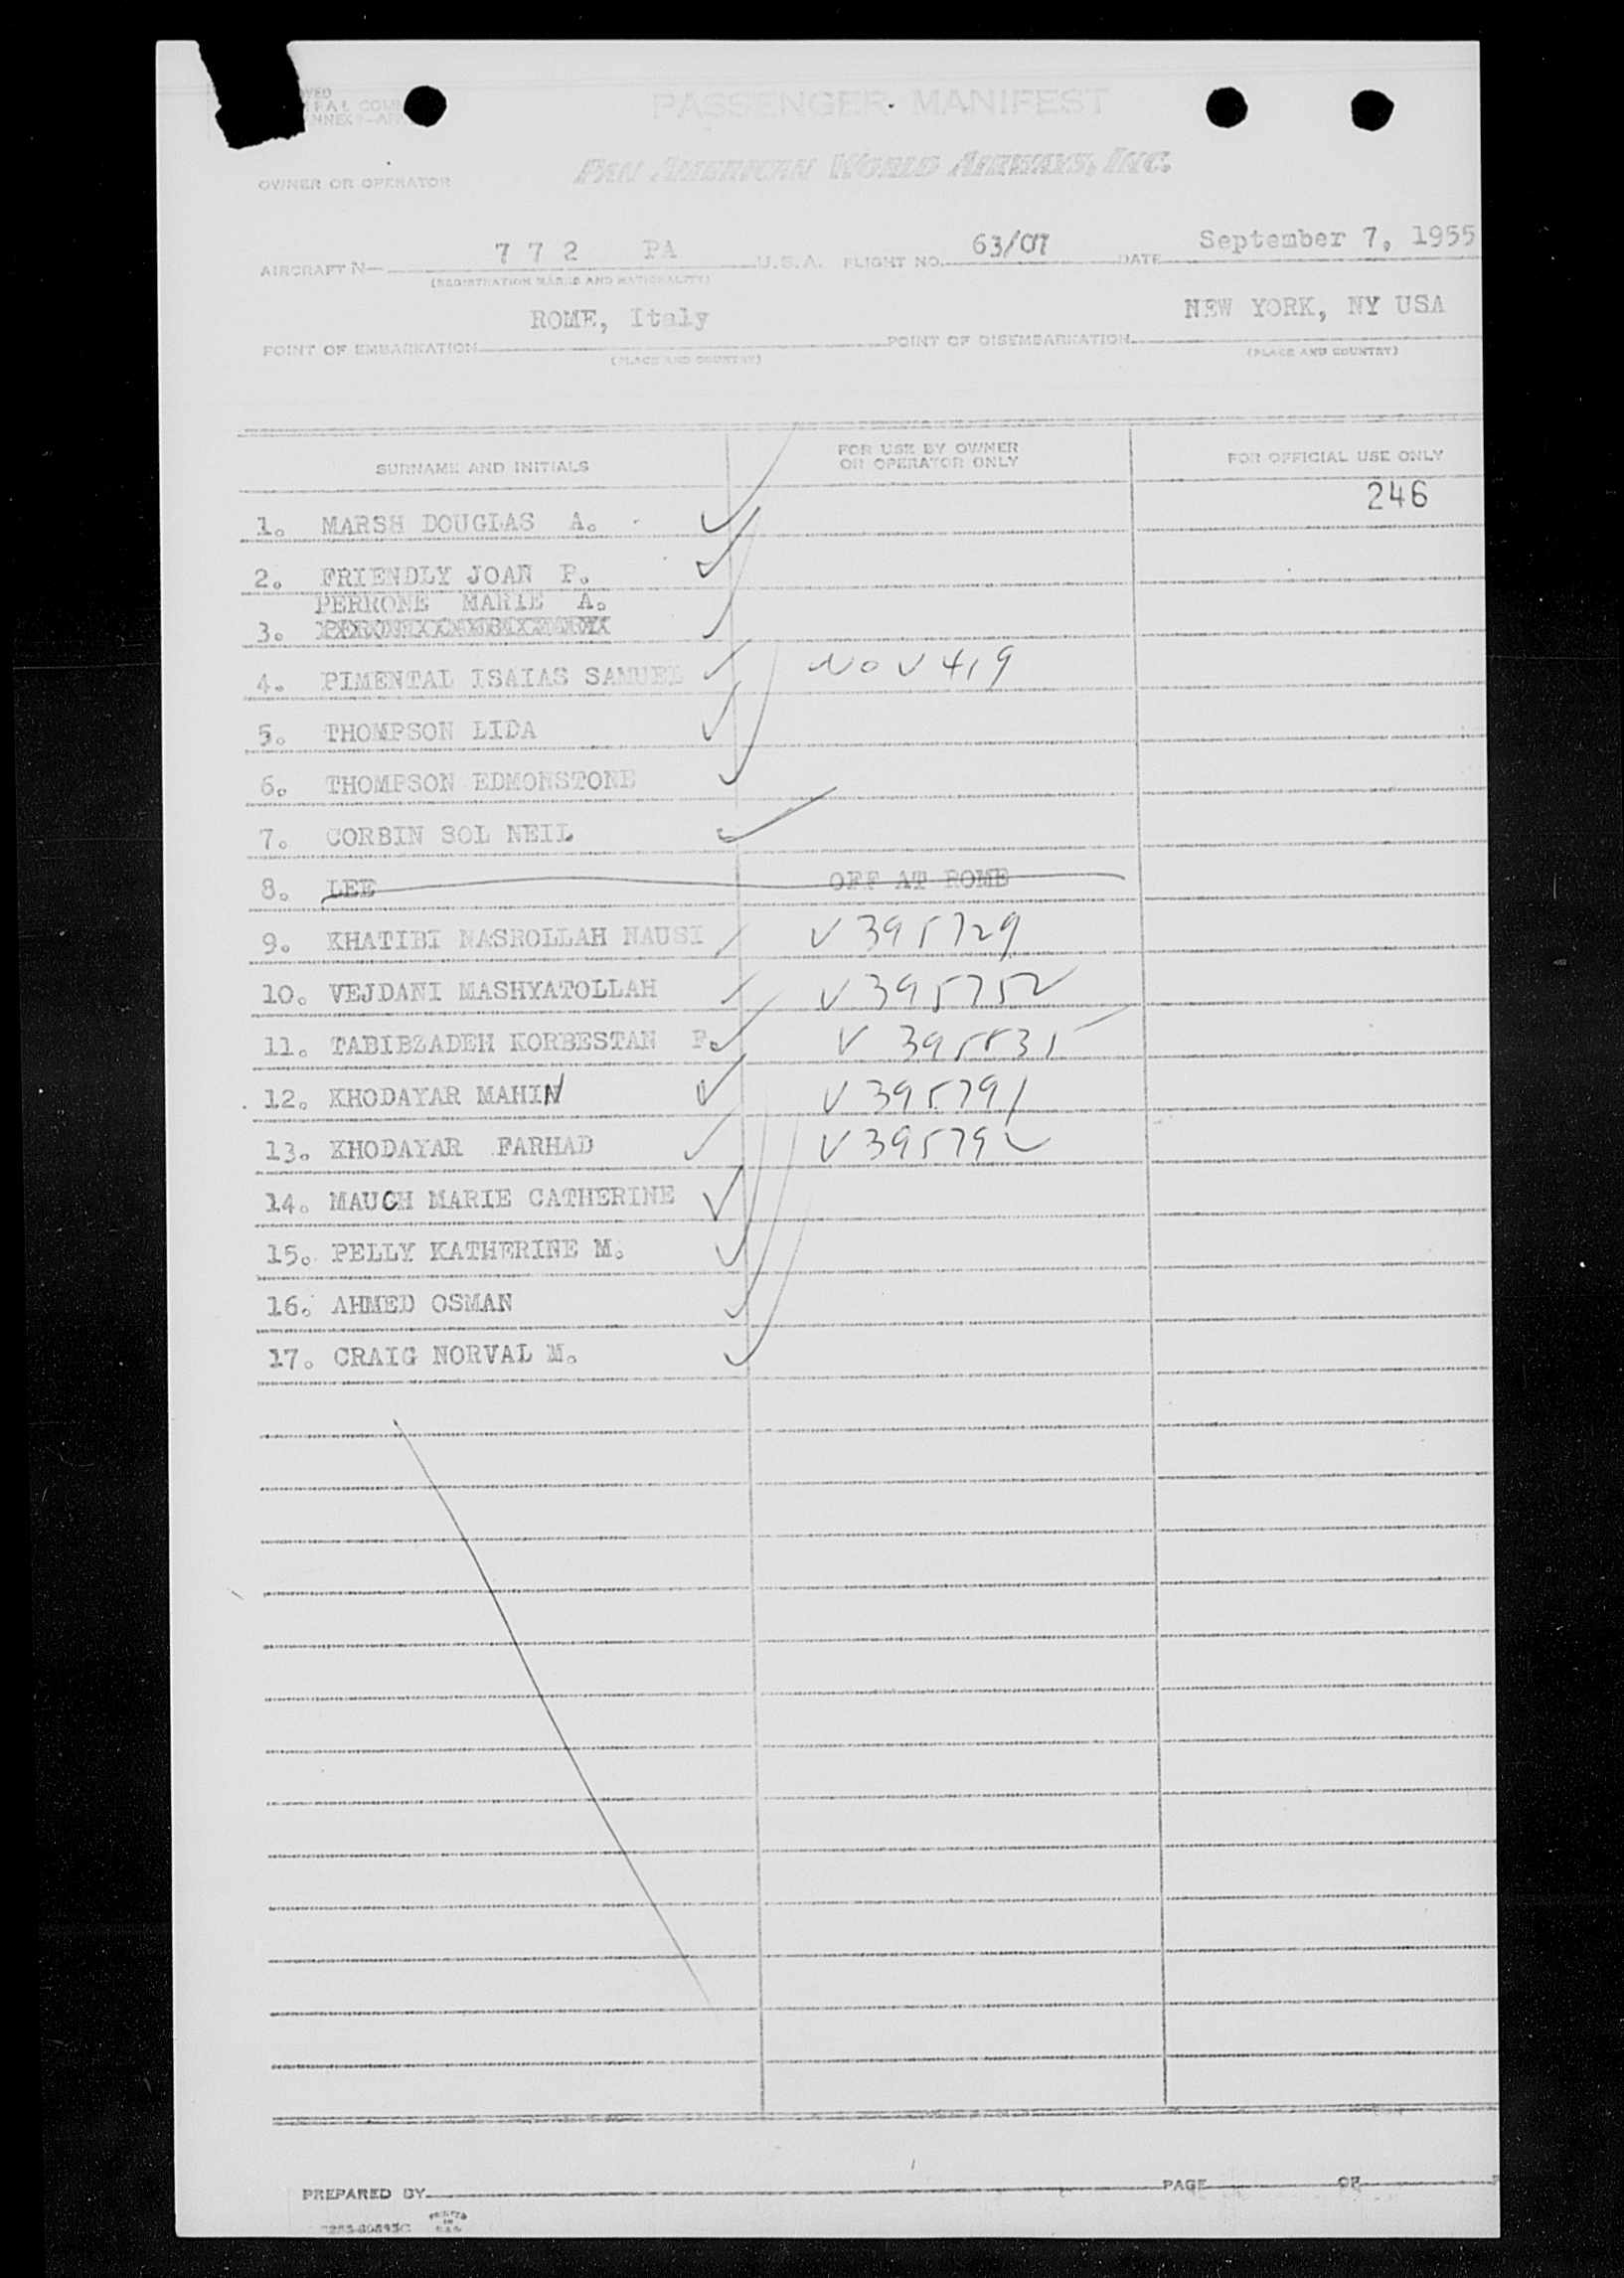 PASSENGER MANIFEST
PAN AMERICAN WORLD AIRWAYS, INC.
OWNER OR OPERATOR
AIRCRAFT N— 7 7 2 PA U.S.A. FLIGHT NO. 63/07 DATE September 7, 1955
(REGISTRATION MARKS AND NATIONALITY)
ROME, Italy NEW YORK, NY USA
POINT OF EMBARKATION POINT OF DISEMBARKATION
(PLACE AND COUNTRY) (PLACE AND COUNTRY)
SURNAME AND INITIALS FOR USE BY OWNER OR OPERATOR ONLY FOR OFFICIAL USE ONLY
246
1. MARSH DOUGLAS A.
2. FRIENDLY JOAN P.
PERRONE MARIE A.
3.
4. PIMENTAL ISAIAS SAMUEL No V 419
5. THOMPSON LIDA
6. THOMPSON EDMONSTONE
7. CORBIN SOL NEIL
8. LEE OFF AT ROME
9. KHATIBI NASROLLAH NAUSI V 395729
10. VEJDANI MASHYATOLLAH V 395752
11. TABIBZADEH KORBESTAN P. V 395531
12. KHODAYAR MAHIN V 395791
13. KHODAYAR FARHAD V 395792
14. MAUCH MARIE CATHERINE
15. PELLY KATHERINE M.
16. AHMED OSMAN
17. CRAIG NORVAL M.
PREPARED BY PAGE OF
PRINTED IN U.S.A.